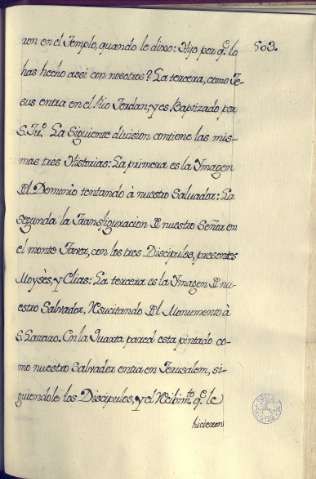 ron en el Templo, quando le dixo: Hijo por q.e lo 503.
has hecho assi con nosotros? La tercera, como Je-
sus entra en el Rio Jordan, y es Baptizado por
S. Ju.o La Siguiente division contiene las mis-
mas tres Historias: La primera es la Ymagen
del Demonio tentando à nuestro Salvador: La
segunda la Transfiguracion de nuestro Señor en
el monte Tavor, con los tres Discipulos, presentes
Moyses, y Elias: La tercera es la Ymagen de nu-
estro Salvador, Resucitando del Monumento à
S. Lazaro. En la Quarta pared esta pintado co-
mo nuestro Salvador entra en Jerusalem, si-
guiendole los Discipulos, y el Recibim.to q.e le
hicieron